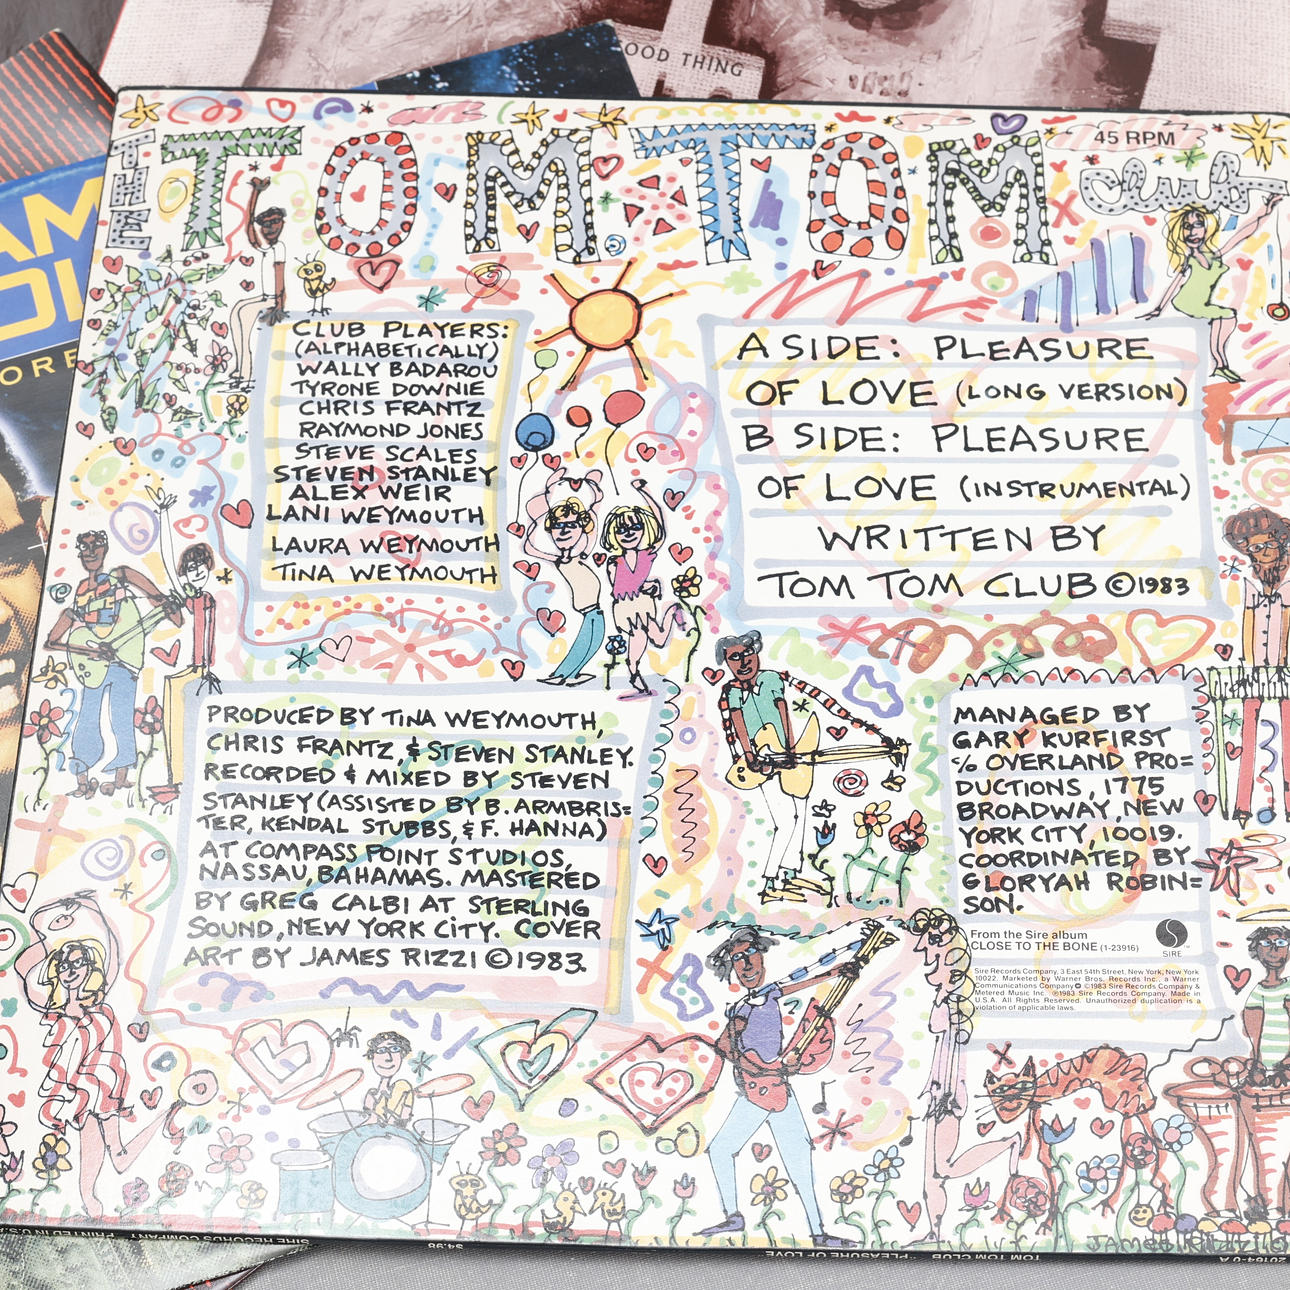 OOD THING
THE TOM TOM club
45 RPM
CLUB PLAYERS:
(ALPHABETICALLY)
WALLY BADAROU
TYRONE DOWNIE
CHRIS FRANTZ
RAYMOND JONES
STEVE SCALES
STEVEN STANLEY
ALEX WEIR
LANI WEYMOUTH
LAURA WEYMOUTH
TINA WEYMOUTH
A SIDE: PLEASURE
OF LOVE (LONG VERSION)
B SIDE: PLEASURE
OF LOVE (INSTRUMENTAL)
WRITTEN BY
TOM TOM CLUB ©1983
PRODUCED BY TINA WEYMOUTH,
CHRIS FRANTZ, & STEVEN STANLEY.
RECORDED & MIXED BY STEVEN
STANLEY (ASSISTED BY B. ARMBRIS=
TER, KENDAL STUBBS, & F. HANNA)
AT COMPASS POINT STUDIOS,
NASSAU, BAHAMAS. MASTERED
BY GREG CALBI AT STERLING
SOUND, NEW YORK CITY. COVER
ART BY JAMES RIZZI ©1983.
MANAGED BY
GARY KURFIRST
c/o OVERLAND PRO=
DUCTIONS, 1775
BROADWAY, NEW
YORK CITY, 10019.
COORDINATED BY
GLORYAH ROBIN=
SON.
From the Sire album
CLOSE TO THE BONE (1-23916)
SIRE
Sire Records Company, 3 East 54th Street, New York, New York
10022. Marketed by Warner Bros. Records Inc., a Warner
Communications Company ©1983 Sire Records Company &
Metered Music Inc. ℗1983 Sire Records Company. Made in
U.S.A. All Rights Reserved. Unauthorized duplication is a
violation of applicable laws.
JAMES RIZZI
AM
ORE
20164-0 A
TOM TOM CLUB
PLEASURE OF LOVE
$4.98
SIRE RECORDS COMPANY
PRINTED IN U.S.A.